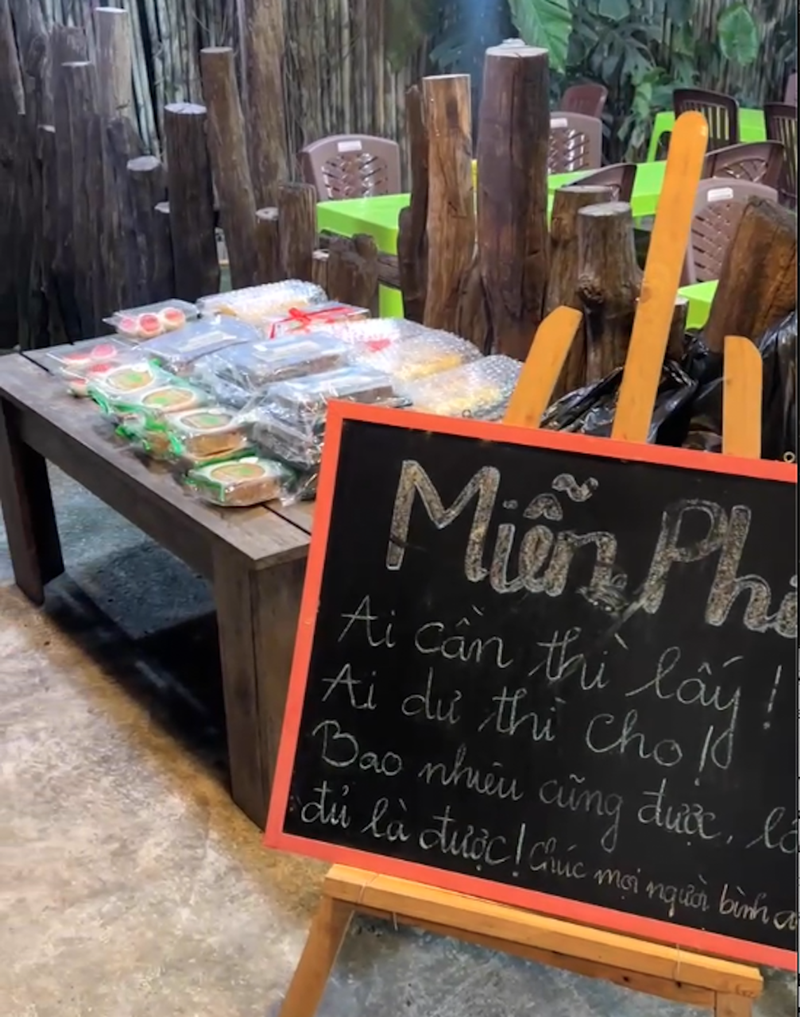 Miễn Phí
Ai cần thì lấy!
Ai dư thì cho!
Bao nhiêu cũng được,
đủ là được! Chúc mọi người bình